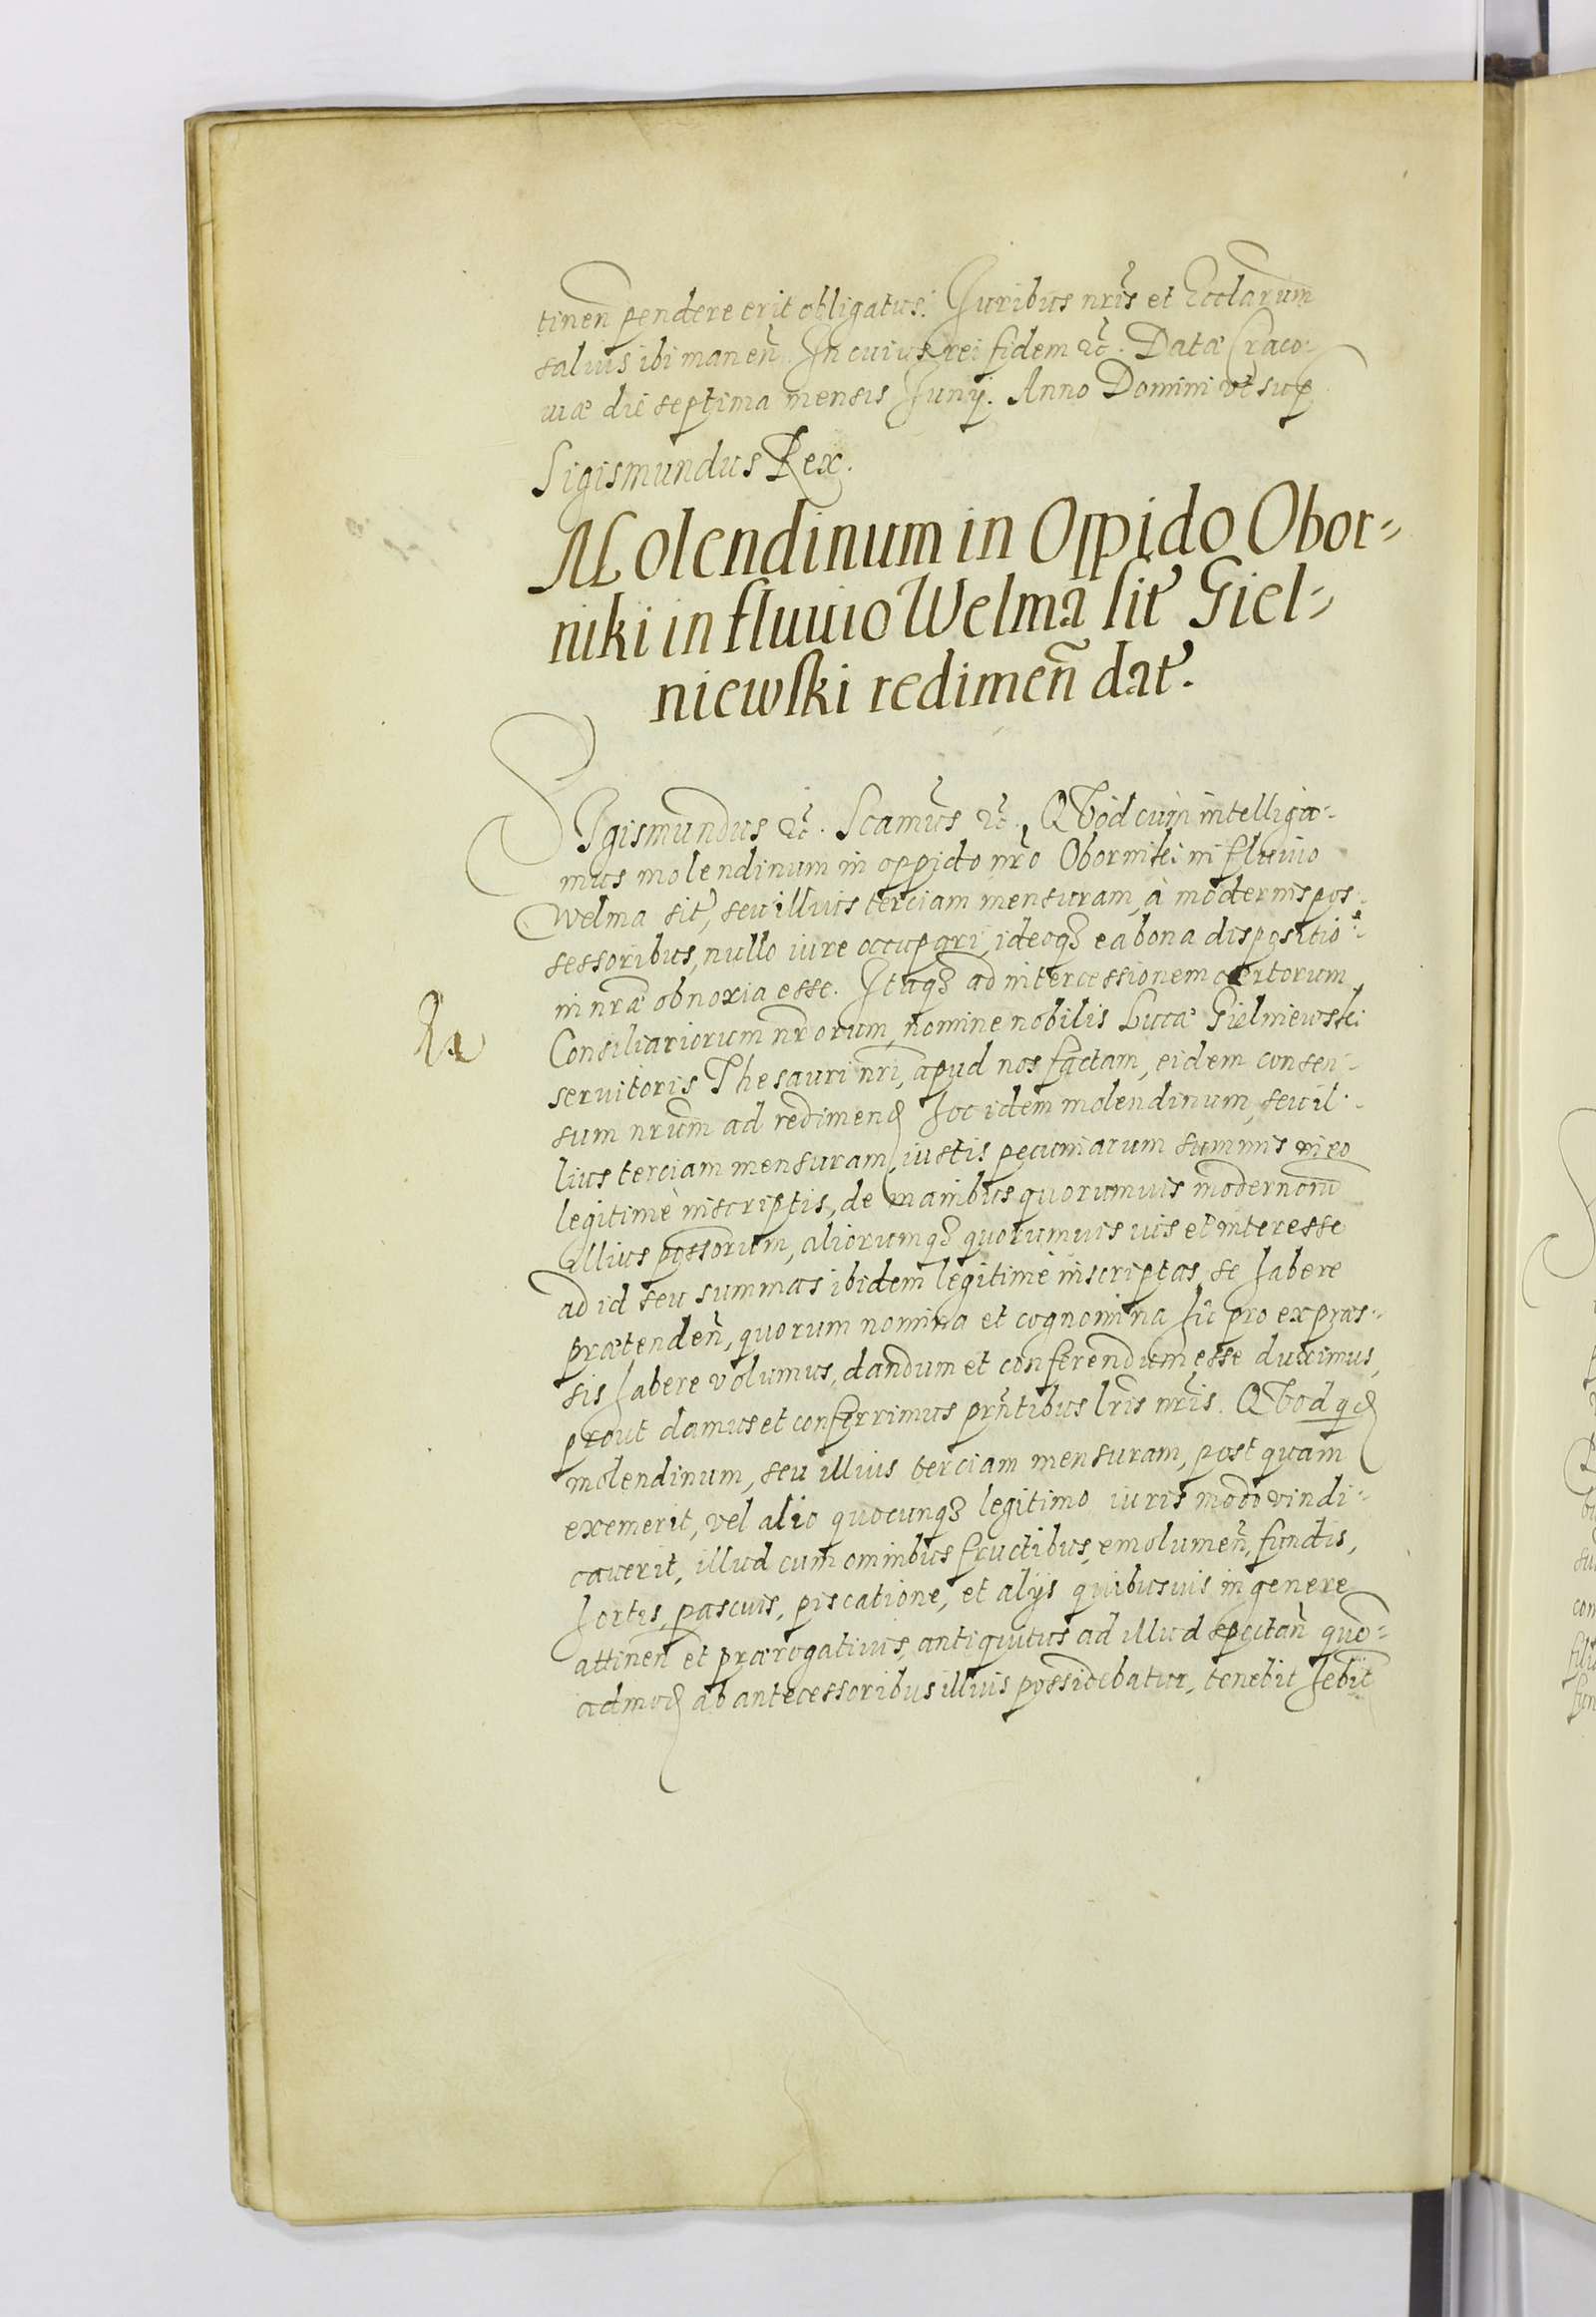 tinen̄ pendere erit obligatus. Juribus nr̄is et Eccl̄arum
saluis ibi manen̄. In cuius rei fidem etc̄. Datæ Craco-
uiæ die septima mensis Junij. Anno Domini vt sup
Sigismundus Rex.
Molendinum in Oppido Obor-
niki in fluuio Welma sit̄ Giel-
niewski redimen̄ dat̄.
SIgismundus etc̄. Scamus etc̄. QVod cum intelliga-
mus molendinum in oppido nr̄o Oborniki in fluuio
Welma sit̄, seu illius terciam mensuram, à modernis pos-
sessoribus, nullo iure occupari, ideoqꝫ ea bona dispositio-
ni nr̄æ obnoxia esse. Itaqꝫ ad intercessionem certorum
Consiliariorum nr̄orum, nomine nobilis Lucæ Gielniewski
seruitoris Thesauri nr̄i, apud nos factam, eidem consen-
sum nr̄um ad redimend hoc idem molendinum, seu il-
lius terciam mensuram, iustis pecuniarum summis in eo
legitimè inscriptis, de manibus quorumuis modernorū
illius possorum, aliorumqꝫ quorumuis ius et interesse
ad id seu summas ibidem legitimè inscriptas se habere
prætenden̄, quorum nomina et cognomina hic pro expræs-
sis habere volumus, dandum et conferendum esse duximus,
prout damus et conferrimus prn̄tibus lr̄is nr̄is. QVod qd
molendinum, seu illius terciam mensuram, post quam
exemerit, vel alio quocunqꝫ legitimo iuris modo vindi-
cauerit, illud cum omnibus fructibus, emolumen̄, fundis,
hortis, pascuis, piscatione, et alijs quibusuis in genere
attinen̄ et prærogatiuis, antiquitus ad illud spectan̄ quē-
admod ab antecessoribus illius possidebatur, tenebit hēbit